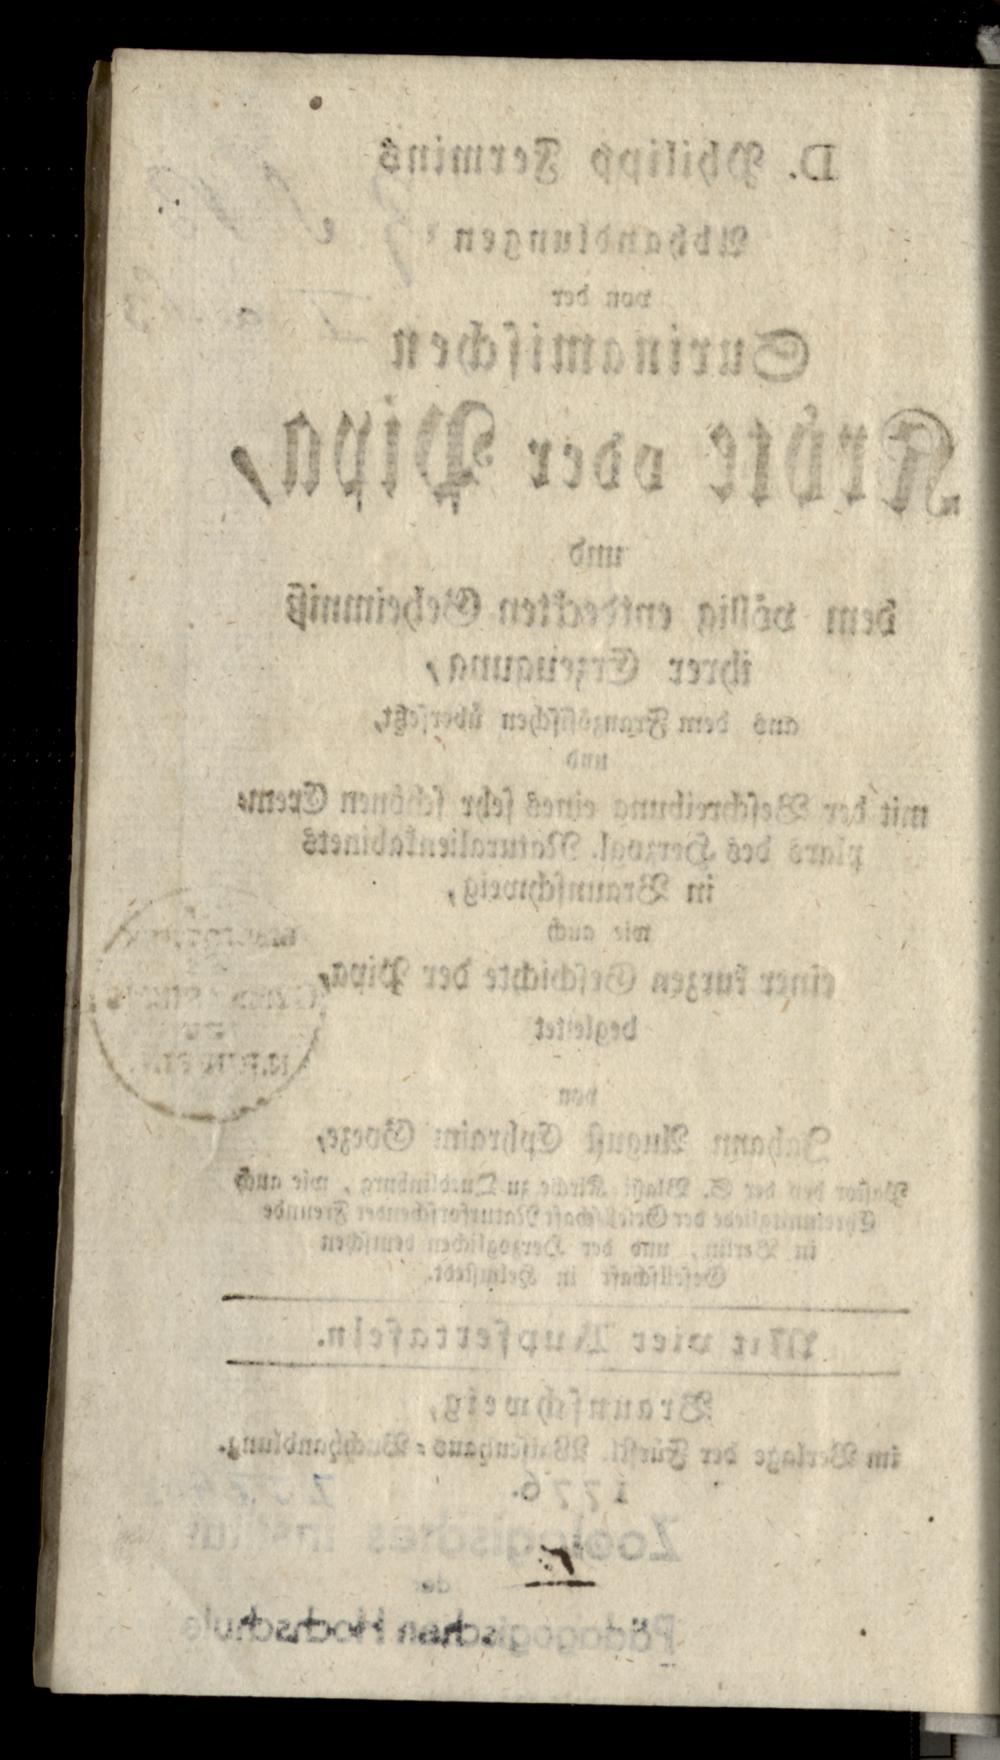 D. Philipp Fermins
Abhandlungen
von der
Surinamischen
Kröte oder Pipa,
und
dem völlig entdeckten Geheimniß
ihrer Erzeugung,
aus dem Französischen übersetzt,
und
mit der Beschreibung eines sehr schönen Exem-
plars des Herzogl. Naturalienkabinets
in Braunschweig,
wie auch
einer kurzen Geschichte der Pipa,
begleitet
von
Johann August Ephraim Goeze,
Pastor bey der S. Blasii Kirche zu Quedlinburg, wie auch
Ehrenmitgliede der Gesellschaft Naturforschender Freunde
in Berlin, und der Herzoglichen deutschen
Gesellschaft in Helmstedt.
Mit vier Kupfertafeln.
Braunschweig,
im Verlage der Fürstl. Waisenhaus-Buchhandlung.
1776.
Zoologisches Institut
der
Pädagogischen Hochschule